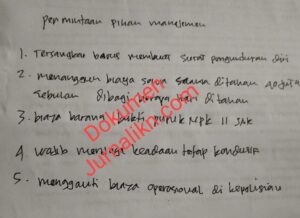 permintaan pihak manajemen
1. Tersangka harus membuat surat pengunduran diri
2. menanggung biaya saya selama ditahan
sebulan dibagi berapa hari di tahan
3. biaya barang bukti untuk NPK II SAK
4 wajib menjaga keadaan tetap kondusif
5. mengganti biaya operasional di kepolisian
Dokumen
Jurnalikn.com